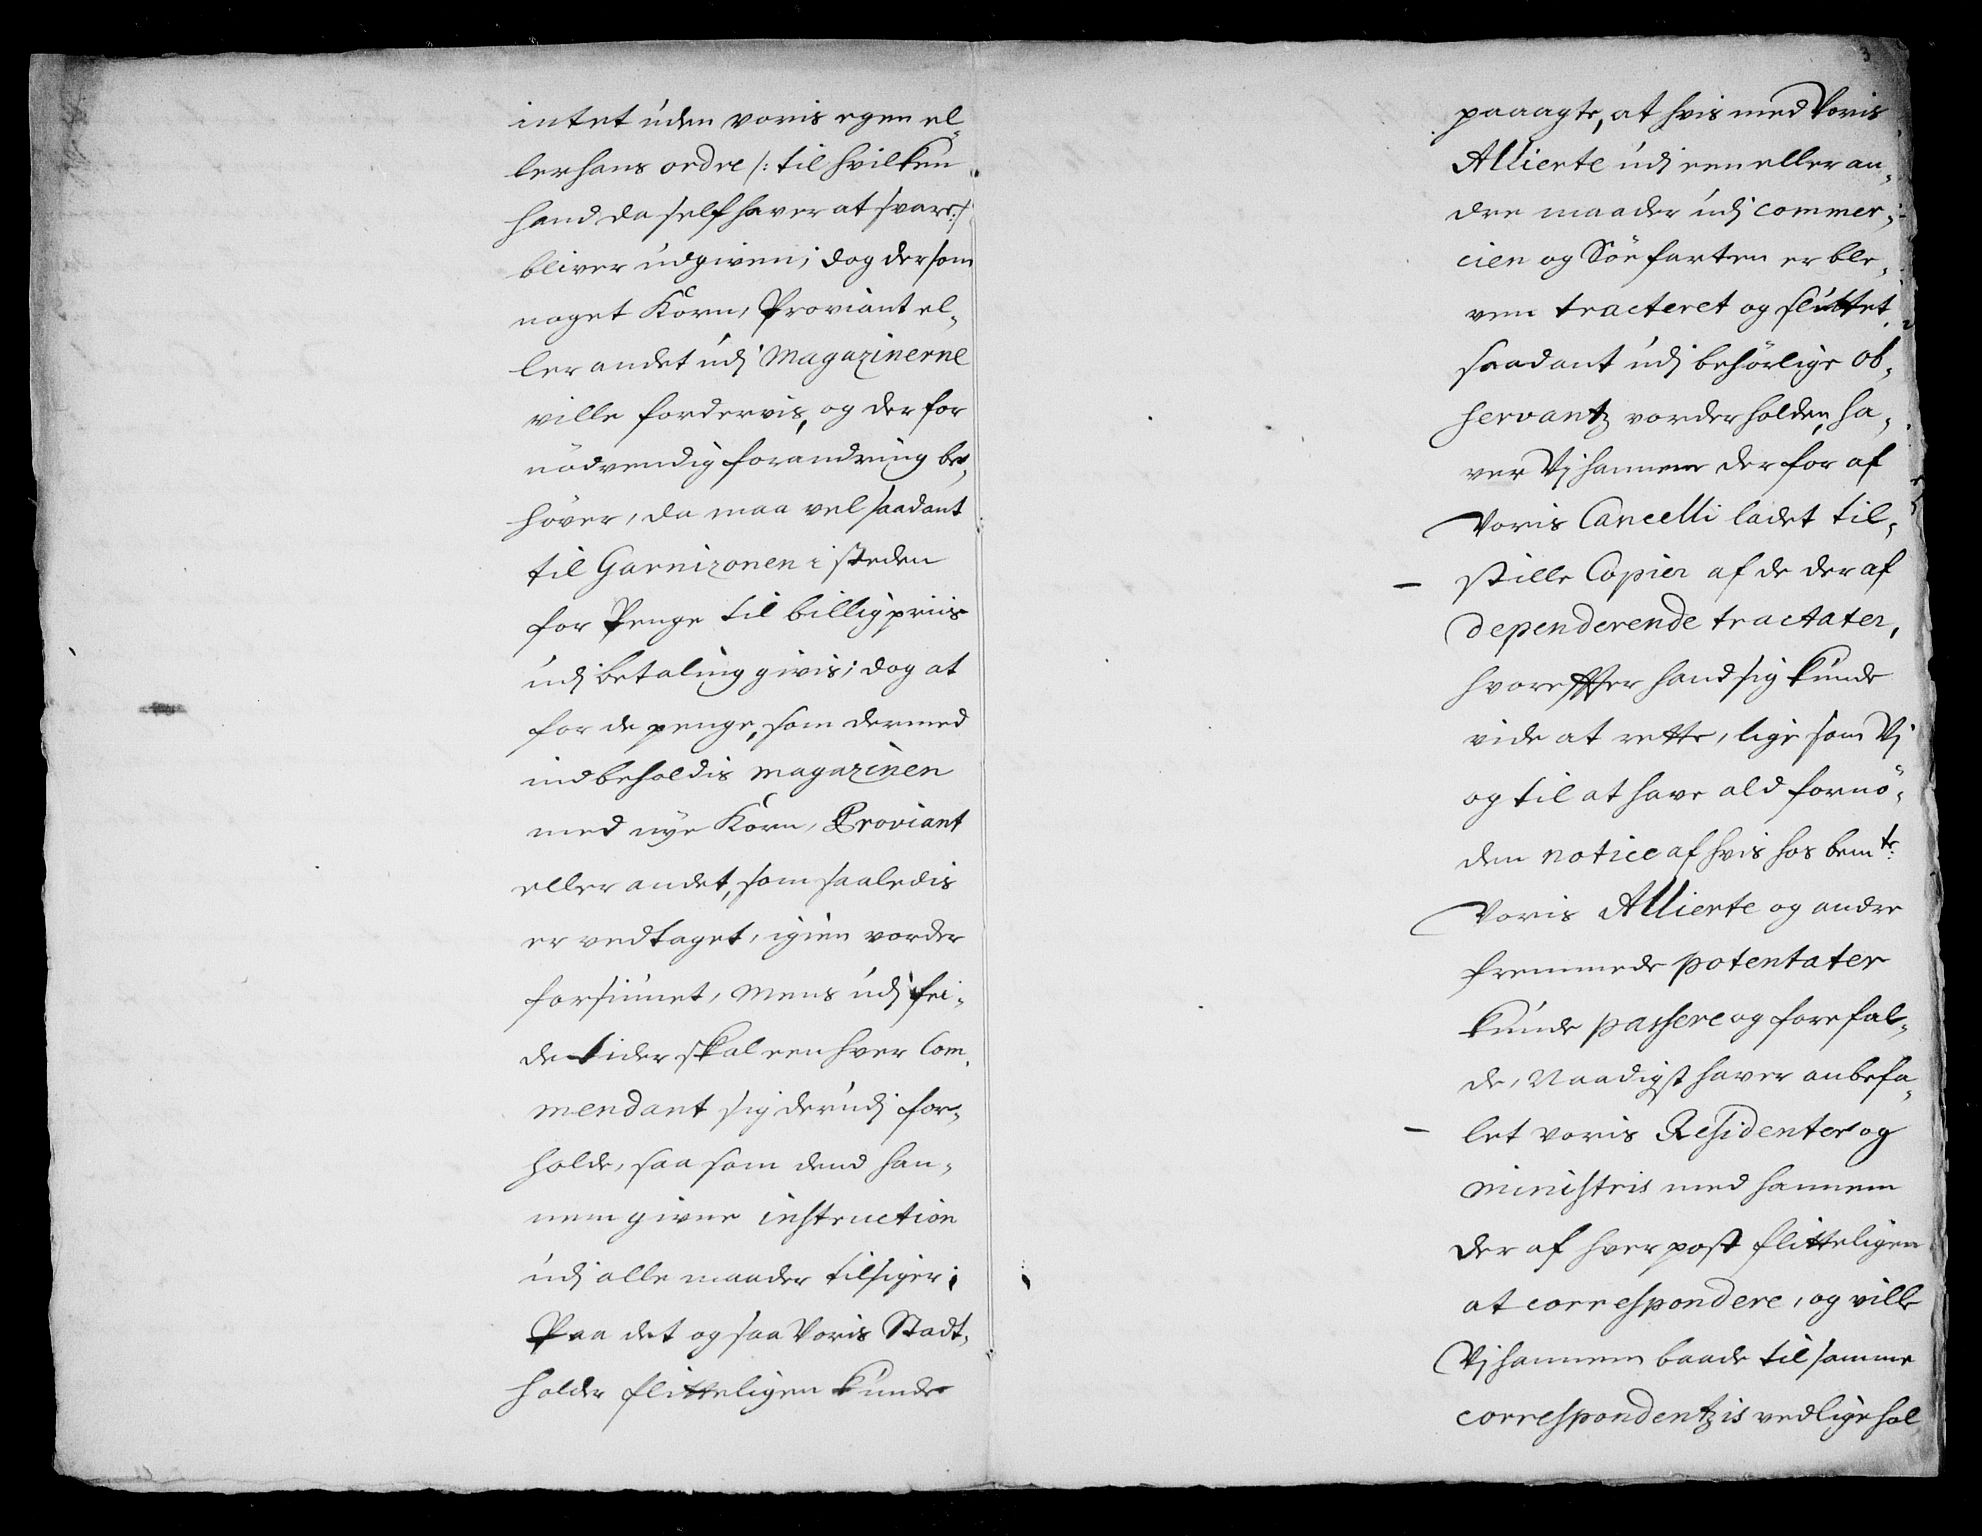 intet uden voris egen el-
ler hans ordre /: til hvilken
hand da self haver at svare :/
bliver udgiven; dog dersom
noget Korn, Proviant el-
ler andet udj Magazinerne
ville fordervis, og derfor
nödvendig forandring be-
höver, da maa vel saadant
til Garnizonen i steden
for Penge til billig priis
udj betaling givis; dog at
for de penge, som dermed
indbeholdis magazinen
med nye Korn, Proviant
eller andet, som saaledis
er vedtaget, igien vorder
forsiunet, Mens udj fei-
de tider skal een hver Com-
mendant sig derudj for-
holde, saa som dend han-
nem givne instruction
udj alle maader tilsiger;
Paa det og saa Voris Stadt-
holder flitteligen kunde
3
paaagte, at hvis med Voris
Allierte udj een eller an-
dre maader udj commer-
cien og Söefarten er ble-
ven tracteret og sluttet
saadant udj behörlige ob-
servantz vorder holden, ha-
ver Vj hannem derfor af
Voris Cancelli ladet til-
stille Copier af de deraf
dependerende tractater,
hvorefter hand sig kunde
vide at rette, lige som Vj
og til at have ald fornö-
den notice af hvis hos bemte:
Voris Allierte og andre
fremmede potentater
kunde passere og forefal-
de, Naadigst haver anbefa-
let voris Residenter og
ministris med hannem
der af hver post flitteligen
at correspondere, og ville
Vj hannem baade til samme
correspondentzis vedligehol